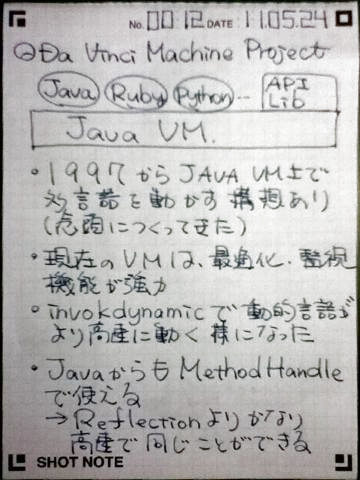 No. 0012 DATE 11.05.24
Da Vinci Machine Project
Java Ruby Python … API
Lib
Java VM.
・1997からJAVA VM上で
多言語を動かす構想あり
(念頭につくってきた)
・現在のVMは、最適化、監視
機能が強力
・invokdynamicで動的言語が
より高速に動く様になった
・JavaからもMethodHandle
で使える
→Reflectionよりかなり
高速で同じことができる
SHOT NOTE